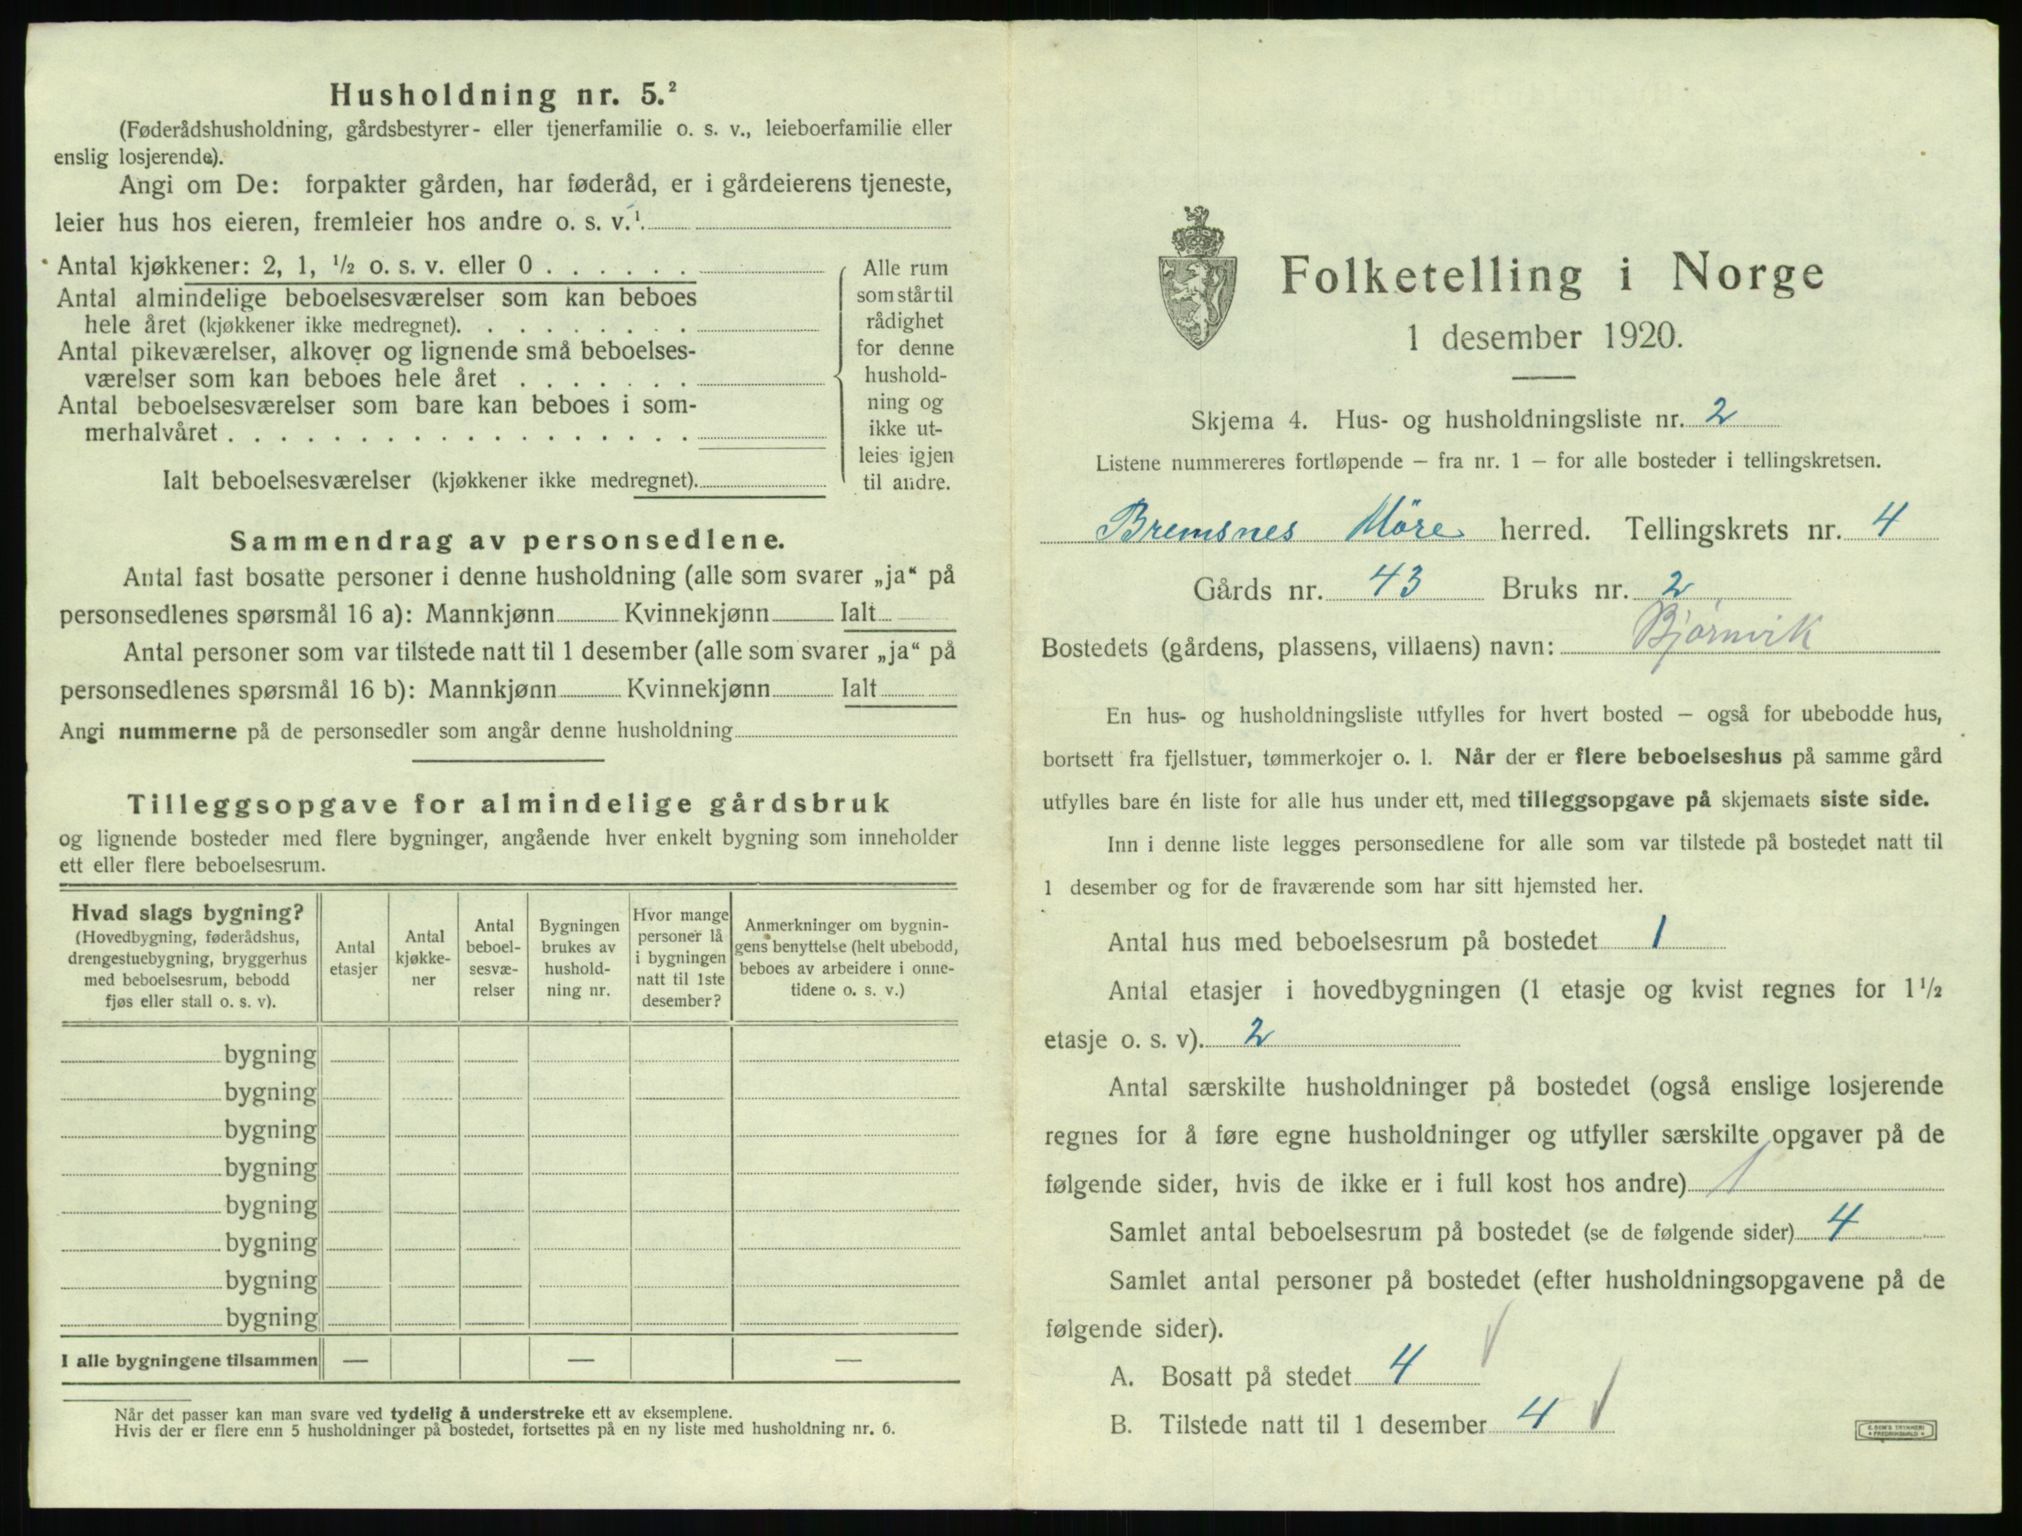 Husholdning nr. 5.²
(Føderådshusholdning, gårdsbestyrer- eller tjenerfamilie o. s. v., leieboerfamilie eller
enslig losjerende).
Angi om De: forpakter gården, har føderåd, er i gårdeierens tjeneste,
leier hus hos eieren, fremleier hos andre o. s. v.¹
Antal kjøkkener: 2, 1, ½ o. s. v. eller 0 . . . . . .
Antal almindelige beboelsesværelser som kan beboes
hele året (kjøkkener ikke medregnet). . . . . . . . .
Antal pikeværelser, alkover og lignende små beboelses-
værelser som kan beboes hele året . . . . . . .
Antal beboelsesværelser som bare kan beboes i som-
merhalvåret . . . . . . . . . . . . . . . . . .
Ialt beboelsesværelser (kjøkkener ikke medregnet).
Alle rum
som står til
rådighet
for denne
hushold-
ning og
ikke ut-
leies igjen
til andre.
Sammendrag av personsedlene.
Antal fast bosatte personer i denne husholdning (alle som svarer „ja“ på
personsedlenes spørsmål 16 a): Mannkjønn Kvinnekjønn Ialt
Antal personer som var tilstede natt til 1 desember (alle som svarer „ja“ på
personsedlenes spørsmål 16 b): Mannkjønn Kvinnekjønn Ialt
Angi nummerne på de personsedler som angår denne husholdning
Tilleggsopgave for almindelige gårdsbruk
og lignende bosteder med flere bygninger, angående hver enkelt bygning som inneholder
ett eller flere beboelsesrum.
Hvad slags bygning?
(Hovedbygning, føderådshus,
drengestuebygning, bryggerhus
med beboelsesrum, bebodd
fjøs eller stall o. s. v).
Antal
etasjer
Antal
kjøkke-
ner
Antal
beboel-
sesvæ-
relser
Bygningen
brukes av
hushold-
ning nr.
Hvor mange
personer lå
i bygningen
natt til 1ste
desember?
Anmerkninger om bygnin-
gens benyttelse (helt ubebodd,
beboes av arbeidere i onne-
tidene o. s. v.)
bygning
bygning
bygning
bygning
bygning
bygning
bygning
bygning
I alle bygningene tilsammen — — —
Når det passer kan man svare ved tydelig å understreke ett av eksemplene.
Hvis der er flere enn 5 husholdninger på bostedet, fortsettes på en ny liste med husholdning nr. 6.
Folketelling i Norge
1 desember 1920.
Skjema 4. Hus- og husholdningsliste nr. 2
Listene nummereres fortløpende – fra nr. 1 – for alle bosteder i tellingskretsen.
Bremsnes Möre herred. Tellingskrets nr. 4
Gårds nr. 43 Bruks nr. 2
Bostedets (gårdens, plassens, villaens) navn: Bjørnvik
En hus- og husholdningsliste utfylles for hvert bosted – også for ubebodde hus,
bortsett fra fjellstuer, tømmerkojer o. l. Når der er flere beboelseshus på samme gård
utfylles bare én liste for alle hus under ett, med tilleggsopgave på skjemaets siste side.
Inn i denne liste legges personsedlene for alle som var tilstede på bostedet natt til
1 desember og for de fraværende som har sitt hjemsted her.
Antal hus med beboelsesrum på bostedet 1
Antal etasjer i hovedbygningen (1 etasje og kvist regnes for 1½
etasje o. s. v). 2
Antal særskilte husholdninger på bostedet (også enslige losjerende
regnes for å føre egne husholdninger og utfyller særskilte opgaver på de
følgende sider, hvis de ikke er i full kost hos andre) 1
Samlet antal beboelsesrum på bostedet (se de følgende sider) 4
Samlet antal personer på bostedet (efter husholdningsopgavene på de
følgende sider).
A. Bosatt på stedet 4
B. Tilstede natt til 1 desember 4